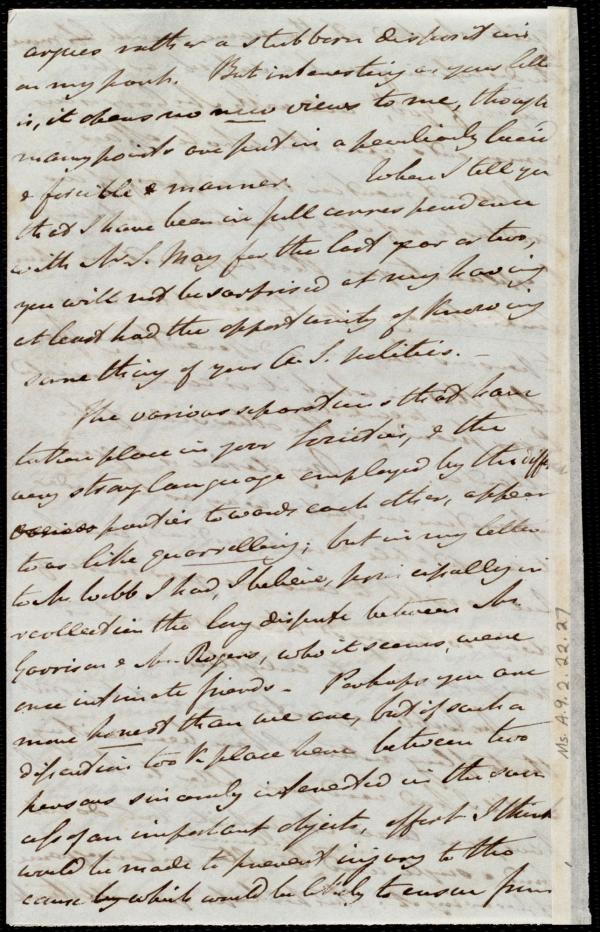 argues rather a stubborn disposition
on my part. But interesting as your letter
is, it opens no new views to me, though
many points are put in a peculiarly lucid
& forcible manner. When I tell you
that I have been in full correspondence
with Mr S. May for the last year or two,
you will not be surprised at my having
at least had the opportunity of knowing
something of your A. S. politics. –
The various separations that have
taken place in your Societies, & the
very strong language employed by the difft
parties towards each other, appear
to us like quarrelling; but in my letter
to Mr Webb I had, I believe, principally in
recollection the long dispute between Mr
Garrison & Mr Rogers, who it seems, were
once intimate friends – Perhaps you are
more honest than we are, but if such a
disputation took place here between two
persons sincerely interested in the
of an important objects, effort I think
would be made to prevent injury to the
cause by which would be likely to ensue from
Ms. A.9.2.22.27